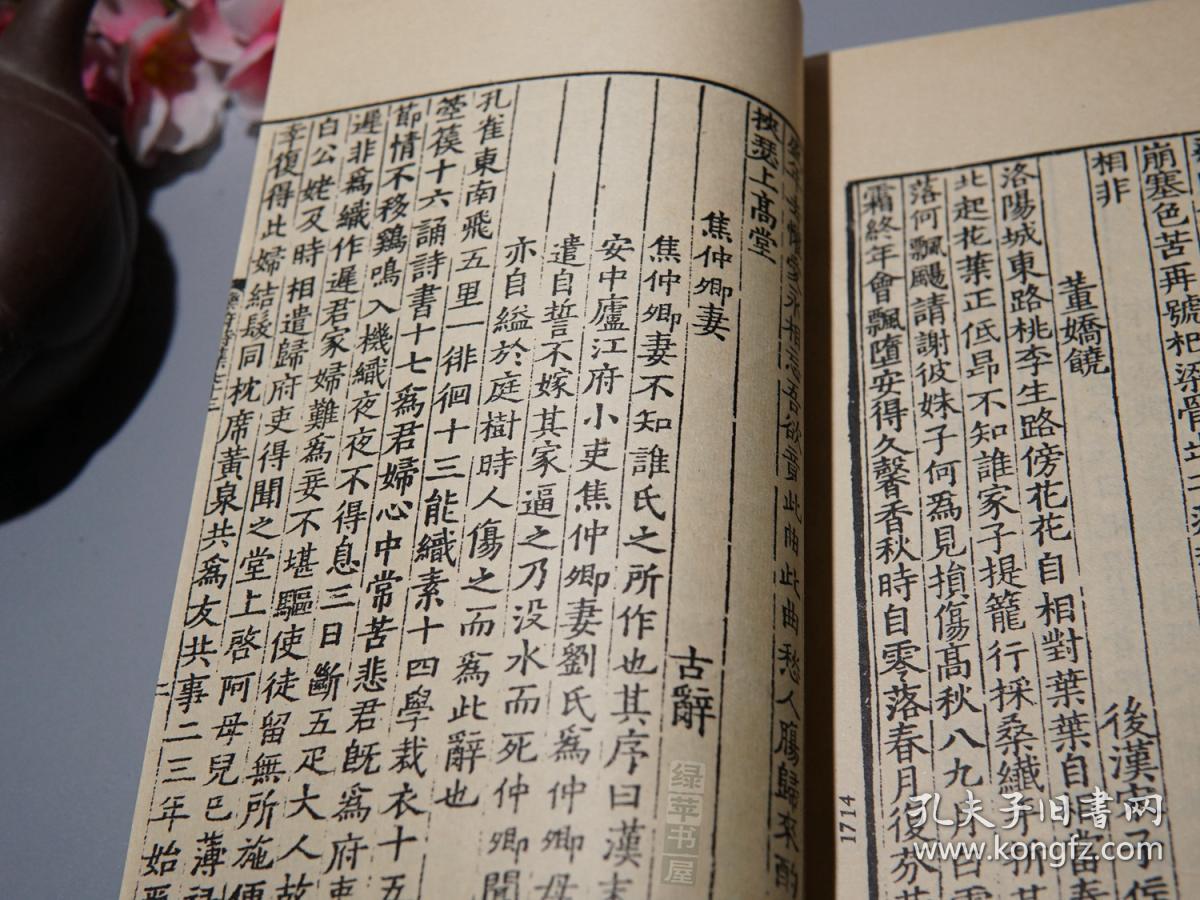 崩塞色苦再號杞梁骨
相非
董嬌饒 後漢宋子侯
洛陽城東路桃李生路傍花花自相對葉葉自相當春
北起花葉正低昂不知誰家子提籠行採桑纖手折其
落何飄颺請謝彼姝子何爲見損傷高秋八九月白露
霜終年會飄墮安得久馨香秋時自零落春月復芬
1714
永相忘吾欲竟此曲此曲愁人腸歸來酌
挾瑟上高堂
焦仲卿妻 古辭
焦仲卿妻不知誰氏之所作也其序曰漢末
安中廬江府小吏焦仲卿妻劉氏爲仲卿母
遣自誓不嫁其家逼之乃没水而死仲卿聞
亦自縊於庭樹時人傷之而爲此辭也
孔雀東南飛五里一徘徊十三能織素十四學裁衣十五
箜篌十六誦詩書十七爲君婦心中常苦悲君旣爲府吏
節情不移鷄鳴入機織夜夜不得息三日斷五疋大人故
遲非爲織作遲君家婦難爲妾不堪驅使徒留無所施便
白公姥及時相遣歸府吏得聞之堂上啓阿母兒已薄禄
幸復得此婦結髮同枕席黃泉共爲友共事二三年始爾
绿苹书屋
孔夫子旧书网
www.kongfz.com